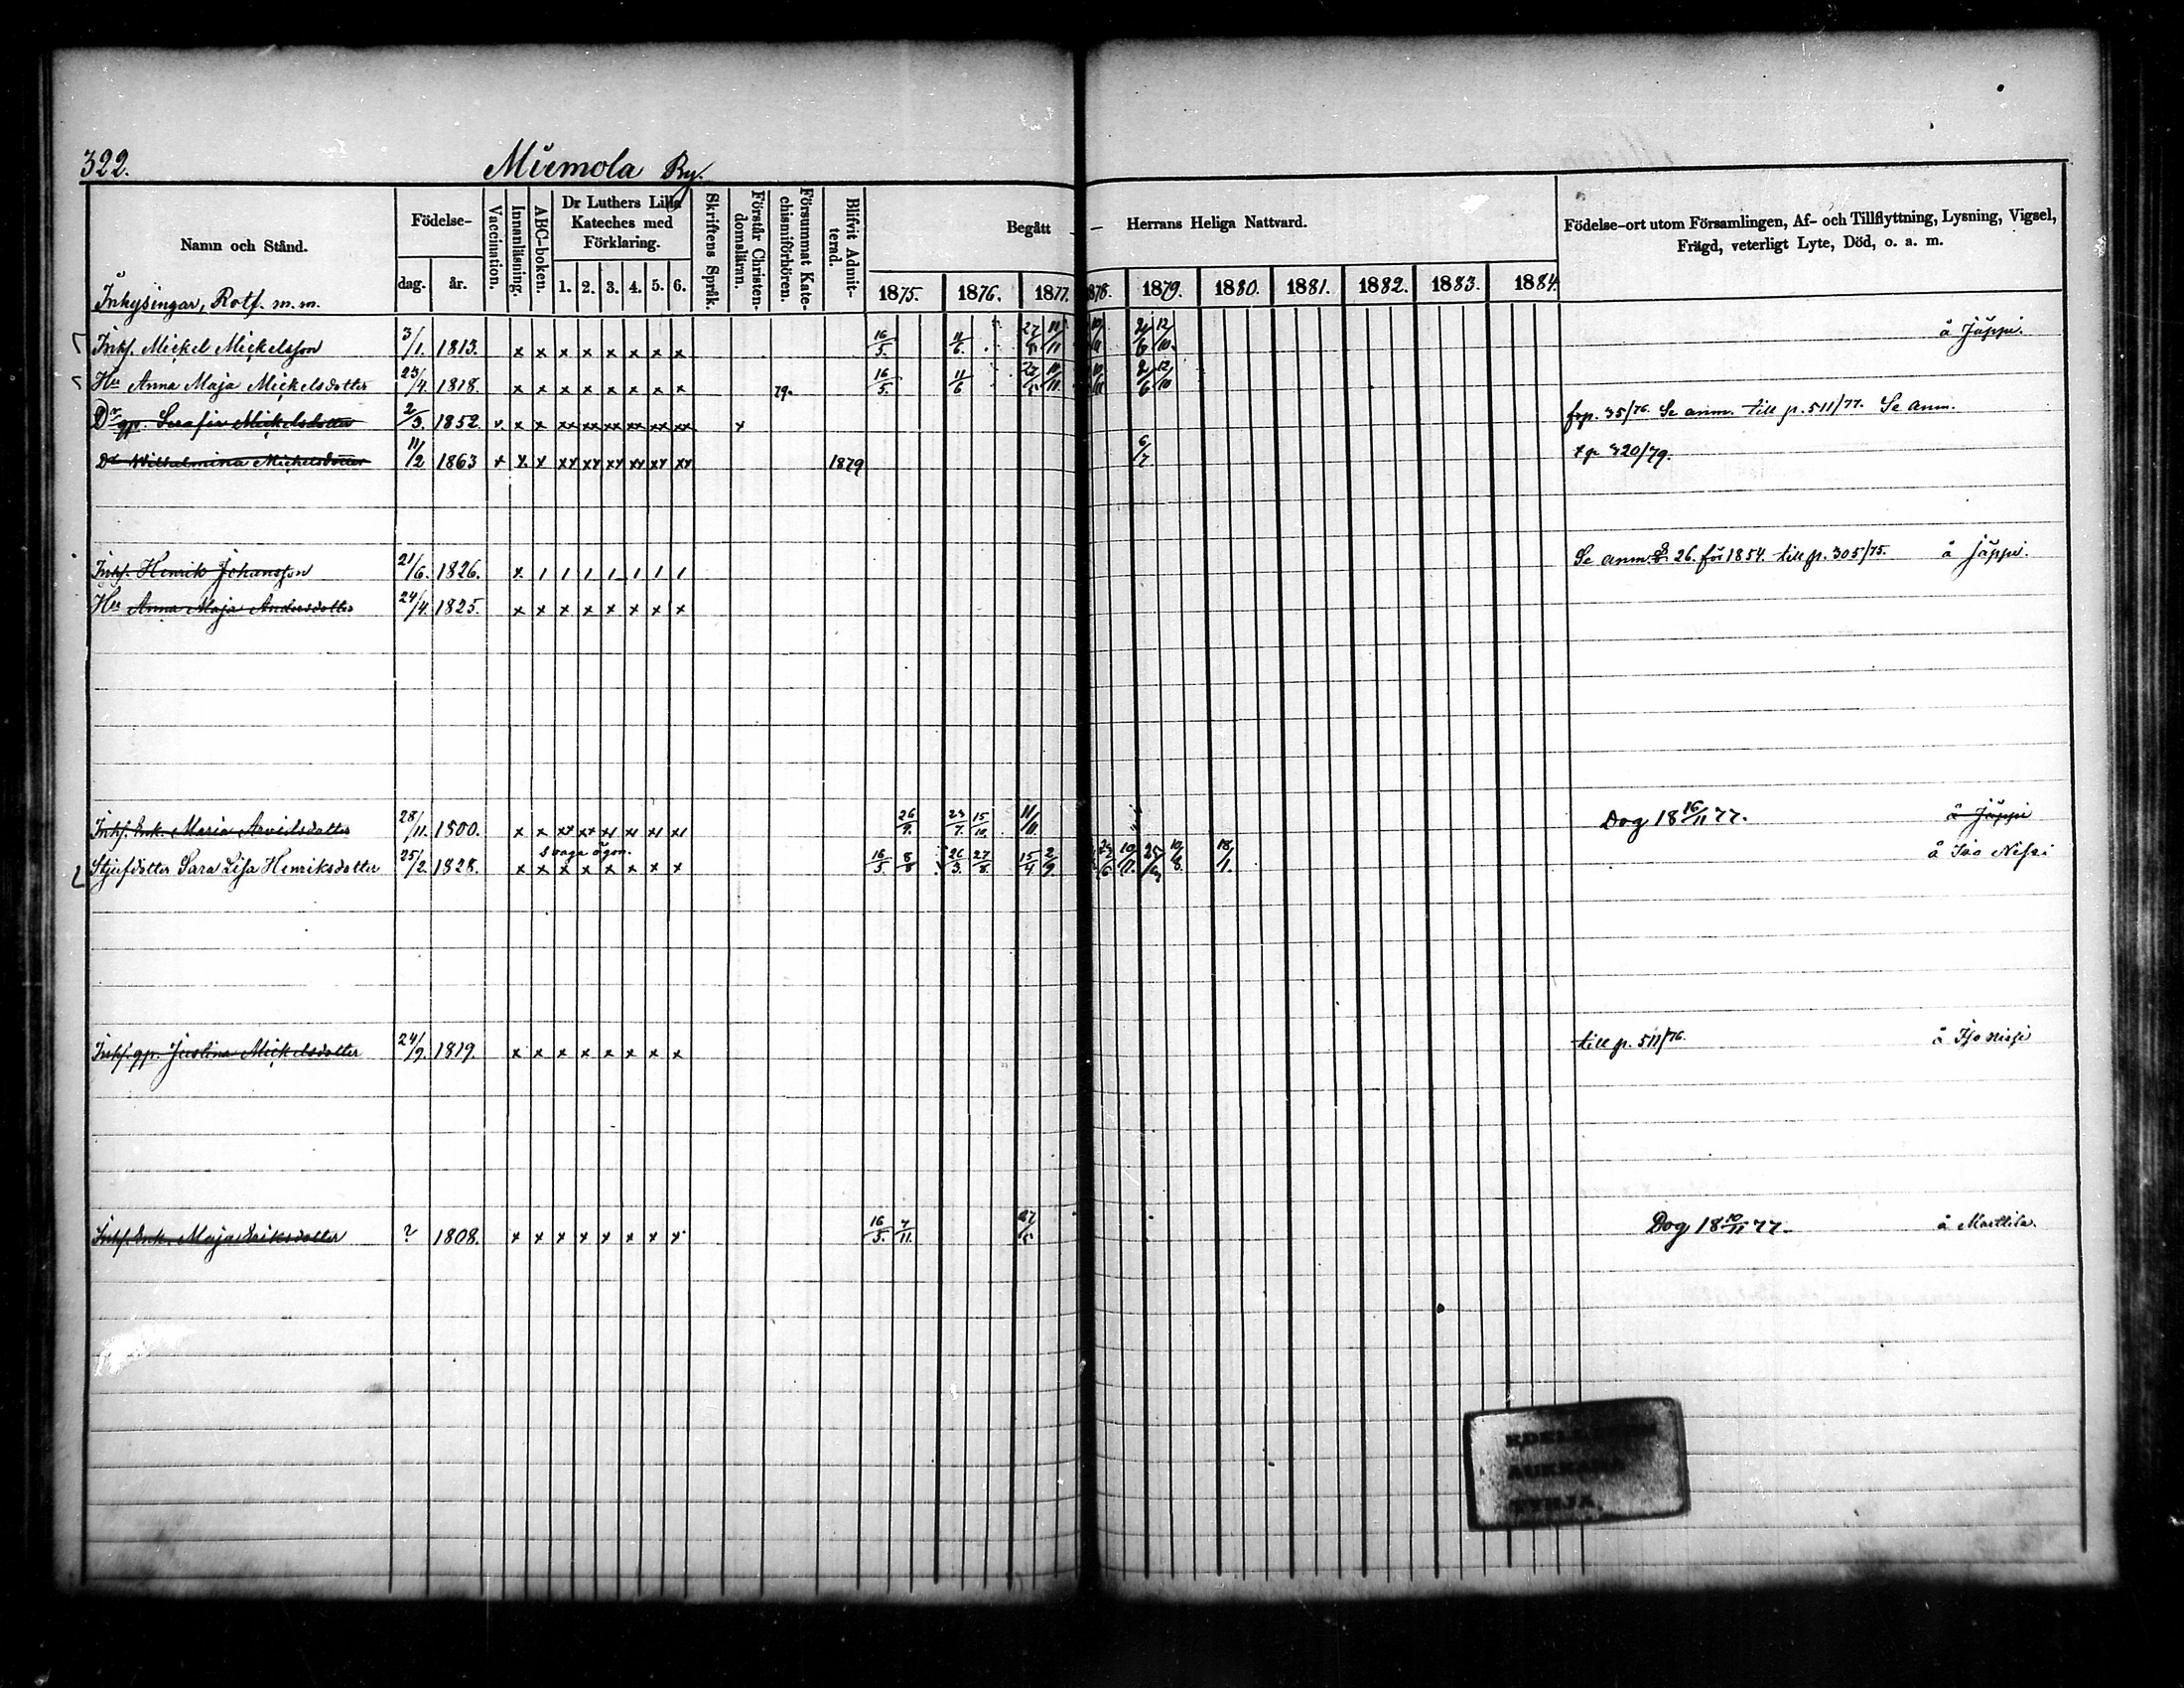 322.
Miemola By.
Namn och Stånd.
Födelse-
dag. år.
Vaccination.
Innanläsning.
ABC-boken.
Dr Luthers Lilla Kateches med Förklaring.
1. 2. 3. 4. 5. 6.
Skriftens Språk.
Förstår Christendomsläran.
Försummat Katechismiförhören.
Blifvit Admitterad.
Begått Herrans Heliga Nattvard.
1875. 1876. 1877. 1878. 1879. 1880. 1881. 1882. 1883. 1884
Födelse-ort utom Församlingen, Af- och Tillflyttning, Lysning, Vigsel,
Frägd, veterligt Lyte, Död, o. a. m.
Inhysingar, Rotf. m. m.
Inhs. Mickel Mickelsson 3/1. 1813. x x x x x x x x 16/5. 11/6. 27/5 11/11 12/10. å Jäppi.
Hu Anna Maja Mickelsdotter 23/4. 1818. x x x x x x x x 79. 16/5. 11/6 12/10
Dr gp. Serafia Mickelsdotter 2/3. 1852. v. x x xx xx xx xx xx xx x frp. 35/76. Se anm. till p. 511/77. Se anm.
Dr Wilhelmina Mickelsdotter 11/2 1863 x x x xx xx xx xx xx xx 1879 6/7. t p 320/79.
Inhs. Henrik Johansson 21/6. 1826. x 1 1 1 1 1 1 1 Se anm. 26. för 1854. till p. 305/75. å Jäppi.
Hu Anna Maja Andersdotter 24/4. 1825. x x x x x x x x
Inhs. Enk. Maria Arvidsdotter 28/11. 1800. x x xx xx x1 x1 x1 x1 26/9. 23/7. 15/10. 11/11 Dog 18 16/11 77. å Jäppi
svaga ögon.
Stjufdotter Sara Lisa Henriksdotter 25/2. 1828. x x x x x x x x 16/5. 8/8 26/3. 27/8. 15/4. 2/9. 10/11. 10/8. 18/1. å Iso Nissi
Inhs. gp. Justina Mickelsdotter 24/9. 1819. x x x x x x x x till p. 511/76. å Iso nissi
Inhs. Enk. Maja Eriksdotter ? 1808. x x x x x x x x 16/5. 7/11. 27/5. Dog 18 10/11 77. å Marttila.
EDELLINEN
AUKEAMA
TYHJÄ